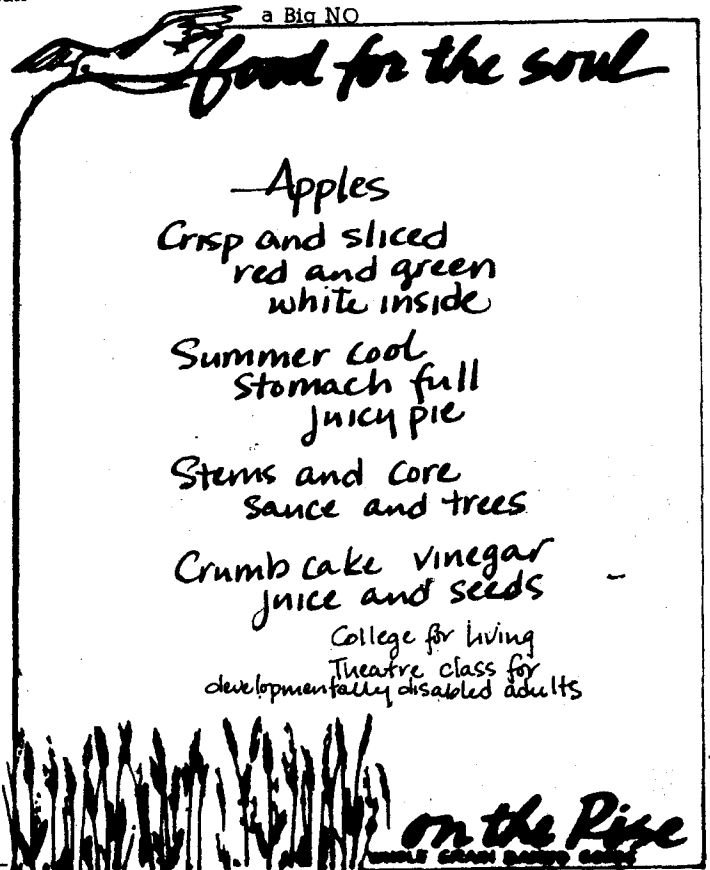 a Big NO
food for the soul
Apples
Crisp and sliced
red and green
white inside
Summer cool
Stomach full
juicy pie
Stems and core
sauce and trees
Crumb cake vinegar
juice and seeds
College for living
Theatre class for
developmentally disabled adults
on the Rise
WHOLE GRAIN BAKED GOODS